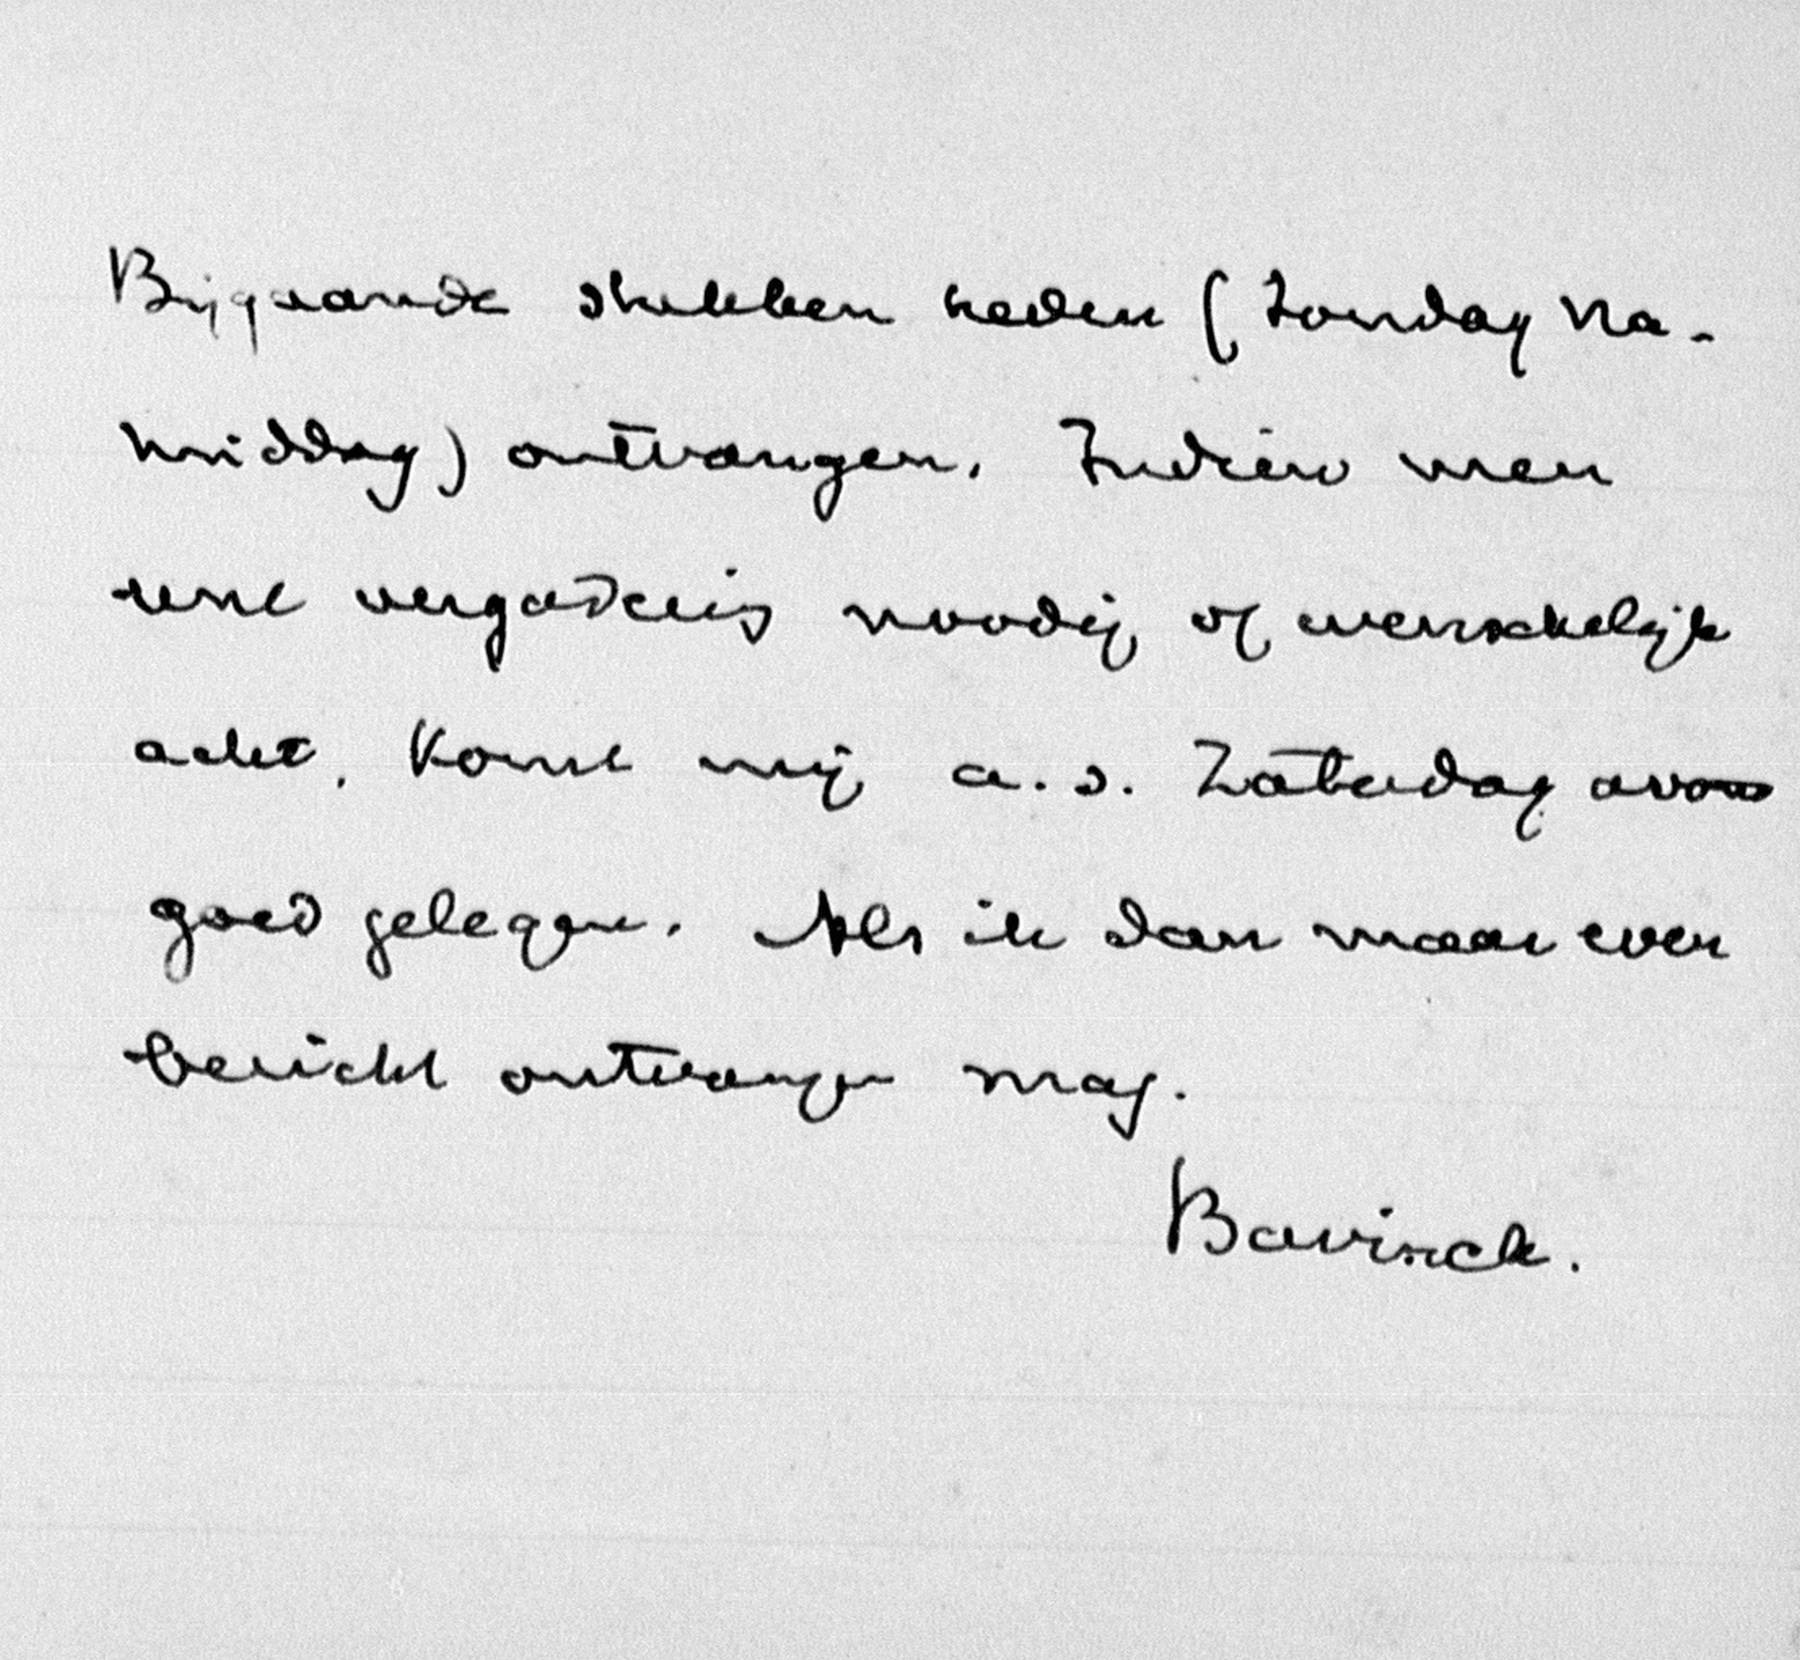 Bijgaande stukken heden (Zondag na-
middag) ontvangen. Indien men
eene vergadering noodig of wenschelijk
acht, komt mij a.s. Zaterdag avond
goed gelegen. Als ik dan maar even
bericht ontvangen mag.
Bavinck.